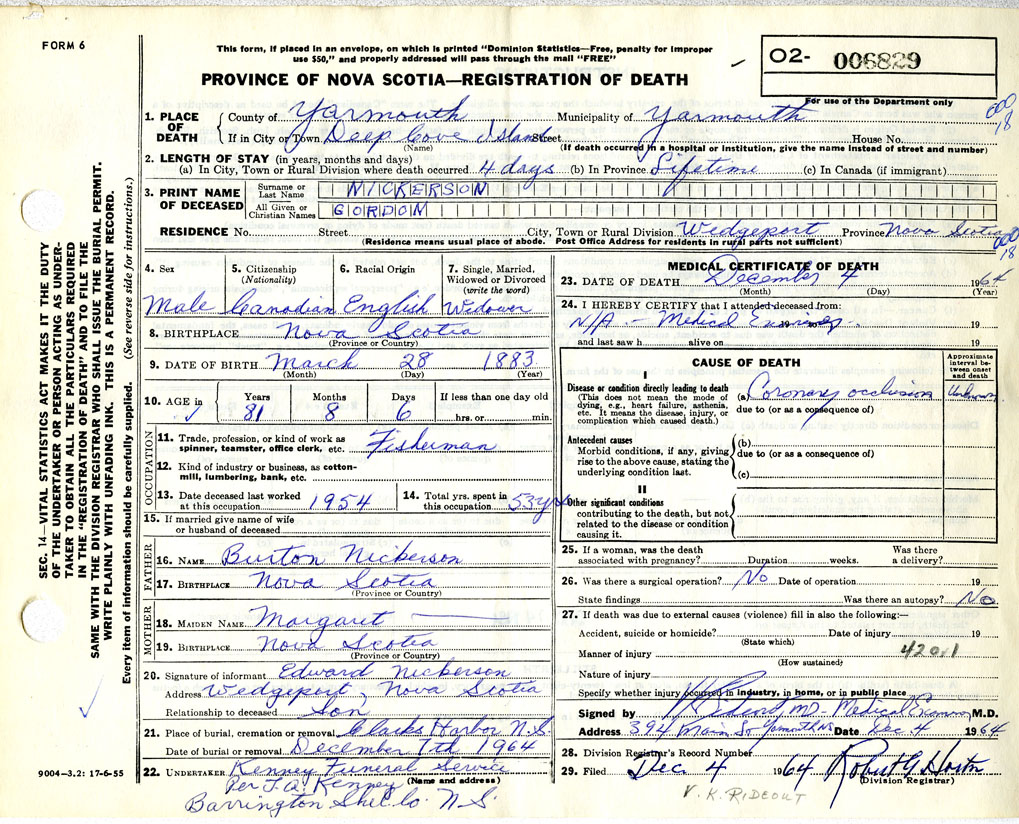 FORM 6
This form, if placed in an envelope, on which is printed "Dominion Statistics—Free, penalty for improper
use $50," and properly addressed will pass through the mail "FREE"
PROVINCE OF NOVA SCOTIA—REGISTRATION OF DEATH
O2- 006829
For use of the Department only
000
18
1. PLACE OF DEATH { County of Yarmouth Municipality of Yarmouth
If in City or Town Deep Cove Island Street House No.
(Name) (If death occurred in a hospital or institution, give the name instead of street and number)
2. LENGTH OF STAY (in years, months and days)
(a) In City, Town or Rural Division where death occurred 4 days (b) In Province Lifetime (c) In Canada (if immigrant)
3. PRINT NAME OF DECEASED { Surname or Last Name NICKERSON
All Given or Christian Names GORDON
RESIDENCE No. Street City, Town or Rural Division Wedgeport Province Nova Scotia
(Residence means usual place of abode. Post Office Address for residents in rural parts not sufficient)
000
18
4. Sex 5. Citizenship (Nationality) 6. Racial Origin 7. Single, Married, Widowed or Divorced (write the word)
Male Canadian English Widower
8. BIRTHPLACE Nova Scotia
(Province or Country)
9. DATE OF BIRTH March 28 1883
(Month) (Day) (Year)
10. AGE in Years Months Days If less than one day old
81 8 6 hrs. or min.
OCCUPATION
11. Trade, profession, or kind of work as spinner, teamster, office clerk, etc. Fisherman
12. Kind of industry or business, as cotton-mill, lumbering, bank, etc.
13. Date deceased last worked at this occupation 1954 14. Total yrs. spent in this occupation 53 yrs
15. If married give name of wife or husband of deceased
FATHER
16. NAME Burton Nickerson
17. BIRTHPLACE Nova Scotia
(Province or Country)
MOTHER
18. MAIDEN NAME Margaret
19. BIRTHPLACE Nova Scotia
(Province or Country)
20. Signature of informant Edward Nickerson
Address Wedgeport, Nova Scotia
Relationship to deceased Son
21. Place of burial, cremation or removal Clarks Harbor N.S.
Date of burial or removal December 7th 1964
22. UNDERTAKER Kenney Funeral Service
(Name and address)
Per J.A. Kenney
Barrington Shel. Co. N.S.
9004—3.2: 17-6-55
MEDICAL CERTIFICATE OF DEATH
23. DATE OF DEATH December 4 1964
(Month) (Day) (Year)
24. I HEREBY CERTIFY that I attended deceased from:
N/A - Medical Examiner 19
and last saw h alive on 19
CAUSE OF DEATH
Approximate interval between onset and death
I
Disease or condition directly leading to death
(This does not mean the mode of dying, e.g., heart failure, asthenia, etc. It means the disease, injury, or complication which caused death.)
(a) Coronary occlusion Unknown
due to (or as a consequence of)
Antecedent causes
Morbid conditions, if any, giving rise to the above cause, stating the underlying condition last.
(b)
due to (or as a consequence of)
(c)
II
Other significant conditions
contributing to the death, but not related to the disease or condition causing it.
25. If a woman, was the death associated with pregnancy? Duration weeks. Was there a delivery?
26. Was there a surgical operation? No Date of operation 19
State findings Was there an autopsy? No
27. If death was due to external causes (violence) fill in also the following:—
Accident, suicide or homicide? Date of injury 19
(State which)
Manner of injury 420.1
(How sustained)
Nature of injury
Specify whether injury occurred in industry, in home, or in public place
Signed by Rideout MD - Medical Examiner M.D.
Address 394 Main St Yarmouth NS Date Dec 4 1964
28. Division Registrar's Record Number
29. Filed Dec 4 1964 Robert G Horton
(Division Registrar)
V. K. RIDEOUT
SEC. 14—VITAL STATISTICS ACT MAKES IT THE DUTY
OF THE UNDERTAKER OR PERSON ACTING AS UNDER-
TAKER TO OBTAIN ALL THE PARTICULARS REQUIRED
IN THE "REGISTRATION OF DEATH" AND TO FILE THE
SAME WITH THE DIVISION REGISTRAR WHO SHALL ISSUE THE BURIAL PERMIT.
WRITE PLAINLY WITH UNFADING INK. THIS IS A PERMANENT RECORD.
Every item of information should be carefully supplied. (See reverse side for instructions.)